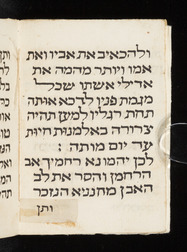 ולהכאיב את אביו ואת
אמו ויותר מהמה את
אדילי אשתו שכל
מגמת פניו לדכא אותה
תחת רגליו למען תהיה
צרורה באלמנות חיות
עד יום מותה :
לכן יהמו נא רחמיך אב
הרחמן והסר את לב
האבן מחנטא הנזכר
ותן